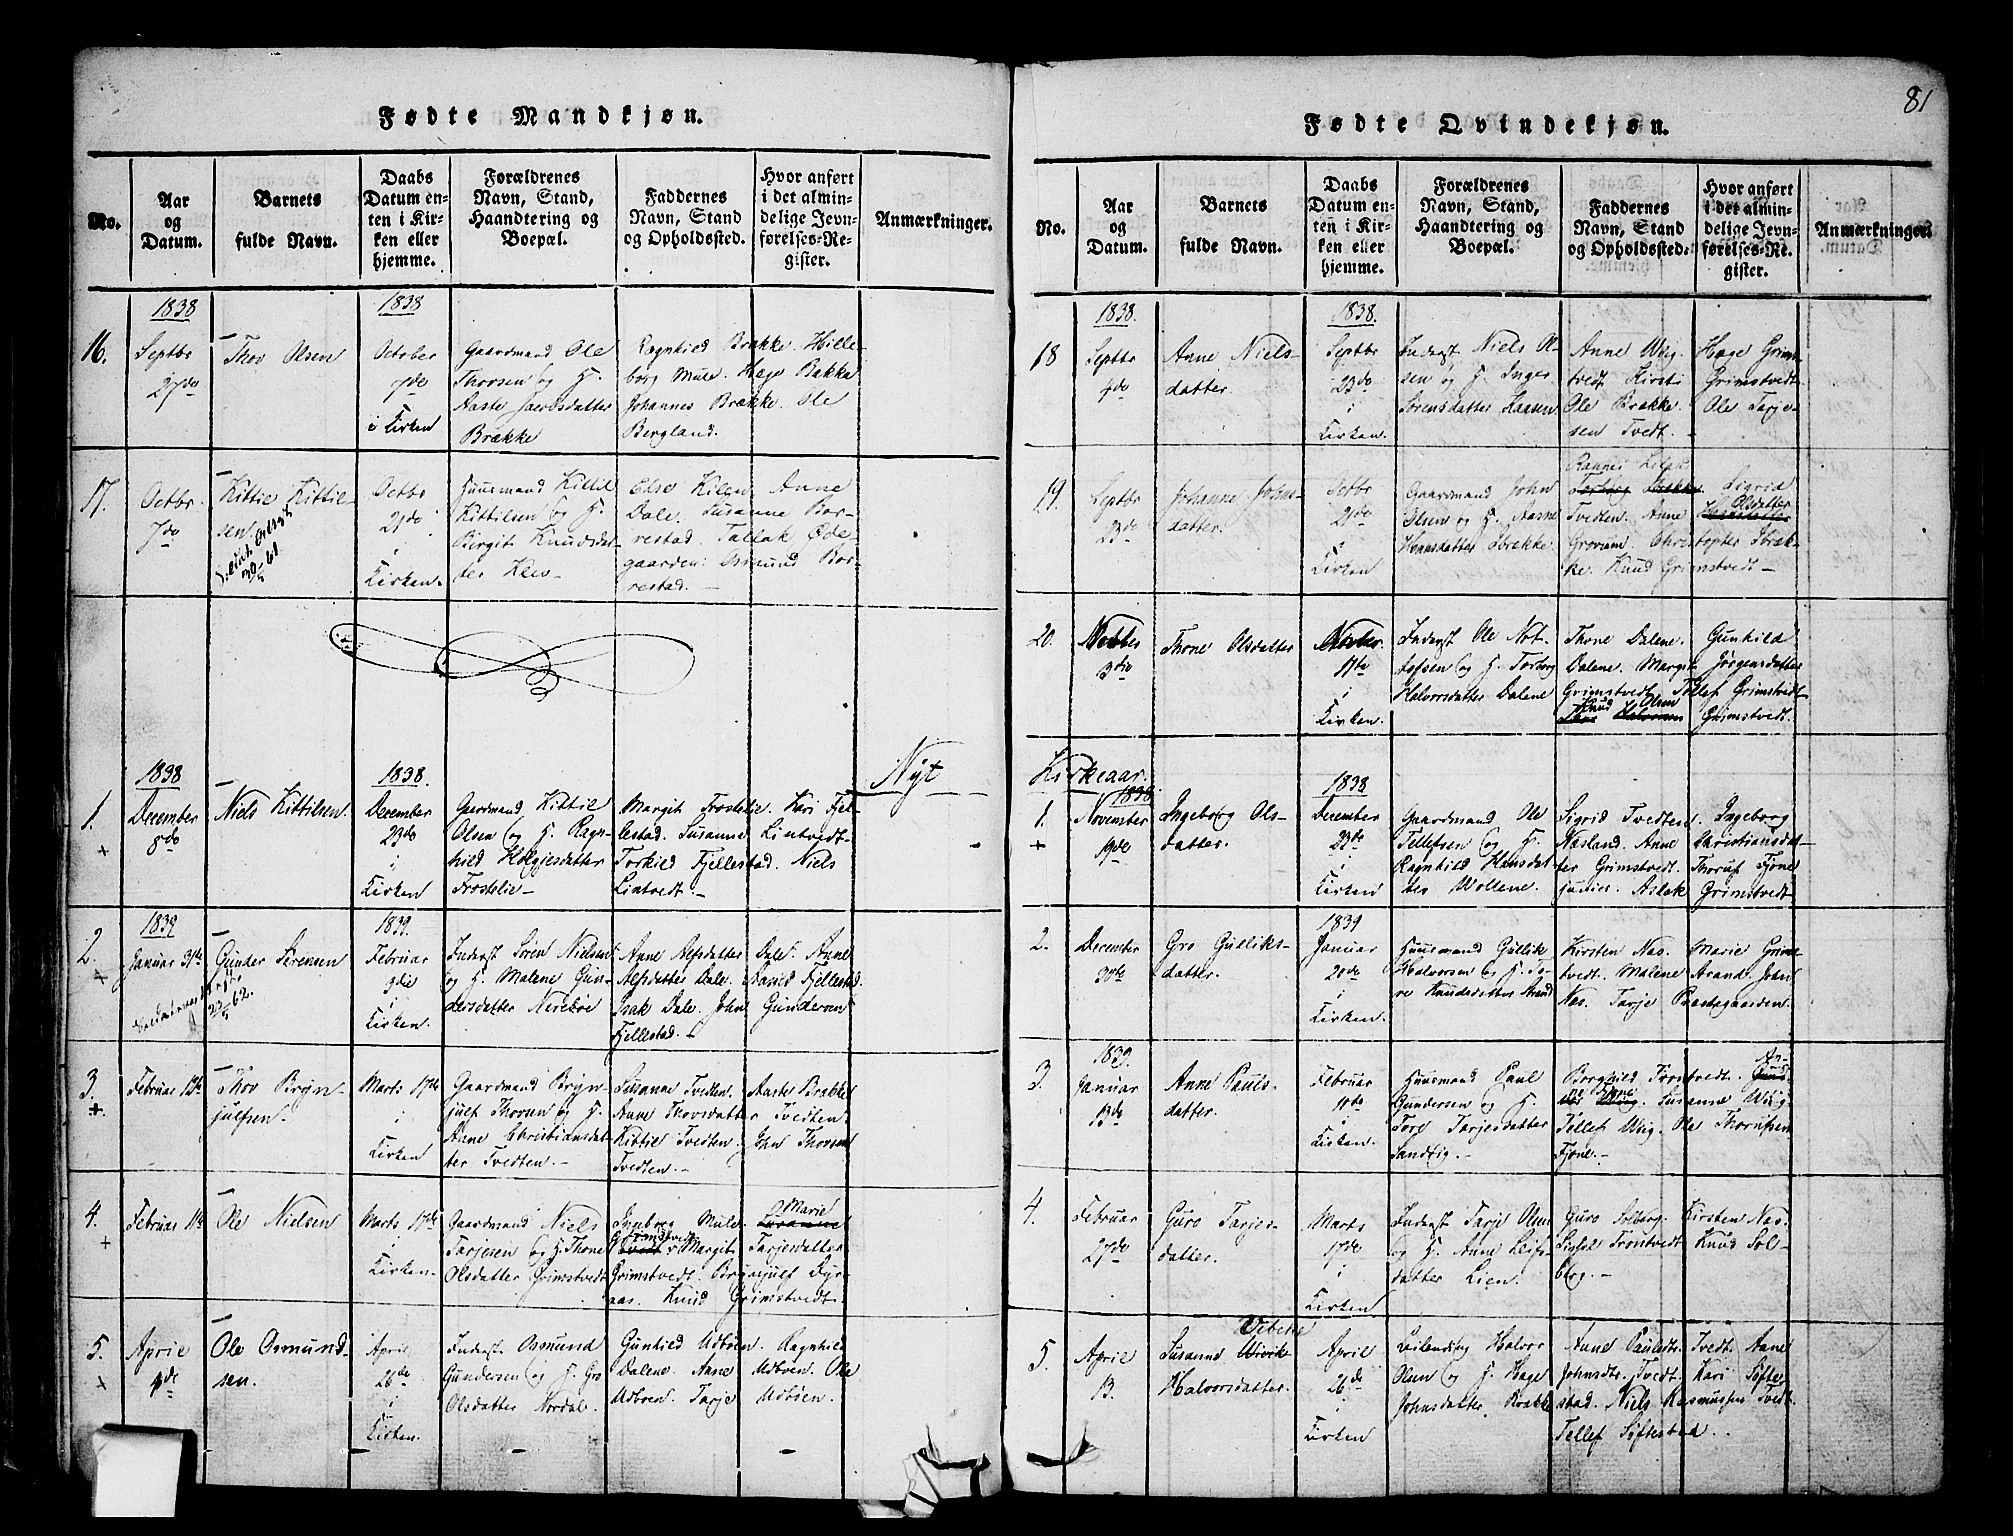 81
Fødte Mandkjøn.
No.
Aar og Datum.
Barnets fulde Navn.
Daabs Datum enten i Kirken eller hjemme.
Forældrenes Navn, Stand, Haandtering og Boepæl.
Faddernes Navn, Stand og Opholdssted.
Hvor anført i det almindelige Jevnførelses-Register.
Anmærkninger.
1838
1838
16.
Septbr 27de
Thov Olsen
October 7de i Kirken
Gaardmand Ole
Thovsen og H.
Aaste Jacobsdatter
Brække
Ragnhild Brække. Hille-
borg Mule. Hage Bakka
Johannes Brække. Ole
Bergland.
17.
Octbr. 7de
Kittil Kittil-
sen
30/5 61.
Octbr 21de i Kirken.
Huusmand Kittil
Kittilsen og H.
Birgit Knudsdat-
ter
Else Kilen Anne
Dale. Susanne Bor-
restad. Tallak Øde-
gaarden. Osmund Bor-
restad.
Nyt
1838
1838.
1.
+
December 8de
Niels Kittilsen.
December 23de i Kirken
Gaardmand Kittil
Olsen og H. Ragn-
hild Helgiesdatter
Frostelie
Margit Frostelie. Kari Fjel-
lestad. Susanne Lintvedt
Torkild Fjellestad. Niels
Lintvedt.
1839
1839.
2.
+
Januar 31te
Gunder Sørensen
23/5 62.
Februar i Kirken.
Inderst Søren Nielsen
og H. Malene Gun-
dersdatter Nerebøe
Anne Alfsdatter Dale. Anne
Alfsdatter Dale. Fjellestad.
Isak Dale. John Gundersen
Fjellestad.
3.
+
Februar 12te
Thov Bryn-
julfsen.
Marts 17de i Kirken
Gaardmand Bryn-
julf Thovsen og H.
Anne Christiansdat-
ter Tvedten.
Susanne Tvedten. Aaste Brække
Aane Thovsdatter Tvedten.
Kittil Tvedten. John Thovsen
Tvedten.
4.
+
Februar 11te
Ole Nielsen
Marts 17de i Kirken.
Gaardmand Niels
Tarjesen og H. Thone
Olsdatter Grimstvedt
Ingeborg Mule. Marie
Grimstvedt Margit Tarjesdatter
Grimstvedt. Brynjulf Dyr-
aas. Knud Grimstvedt.
5.
+
April
Ole Osmund-
sen.
April 26de i Kirken.
Inderst Osmund
Gundersen og H. Gro
Olsdatter Nordal.
Gunhild Udbøen. Ragnhild
Dalene. Aane Udbøen. Ole
Udbøen. Tarje Udbøen.
Fødte Qvindekjøn.
No.
Aar og Datum.
Barnets fulde Navn.
Daabs Datum enten i Kirken eller hjemme.
Forældrenes Navn, Stand, Haandtering og Boepæl.
Faddernes Navn, Stand og Opholdssted.
Hvor anført i det almindelige Jevnførelses-Register.
Anmærkninger.
1838.
1838.
18
Septbr
Anne Niels-
datter.
Septbr 23de i Kirken.
Inderst Niels Ol-
sen og H. Inger
Sørensdatter Kaasen
Anne Wiig. Hage Grim-
tvedt. Kirsti Grimstvedt.
Ole Brække. Ole Tarje-
sen Tvedt.
19.
Septbr 23de
Johanne Johns-
datter.
Octbr 21de i Kirken
Gaardmand John
Olsen og H. Aasne
Hansdatter Brække.
Sigrid
Tvedten. Anne Olsdatter
Grovum. Christopher Bræk-
ke. Knud Grimstvedt
20.
3die
Thone Olsdatter
11te i Kirken.
Inderst Ole Not-
lefsen og H. Torborg
Halvorsdatter Dalene
Thone Dalene. Gunhild
Dalene. Margit Jørgensdatter
Grimstvedt. Tellef Grimstvedt
Knud Olsen Grimstvedt.
Kirkeaar.
1838
1838
1.
+
November 19de
Ingeborg Ols-
datter.
December 23de i Kirken
Gaardmand Ole
Tellefsen og H.
Ragnhild Hansdat-
ter Wollene.
Sigrid Tvedten. Ingeborg
Næsland. Anne Christiansdat-
ter Grimstvedt. Thoruf Fjone
junior. Aslak Grimstvedt
1839
2.
December 30te
Gro Gulliks-
datter.
Januar 20de i Kirken.
Huusmand Gullik
Halvorsen og H. To-
re Knudsdatter Strand
Kirsten Nas. Marie Grim-
tvedt. Malene Strand. John
Nas. Tarje Præstegaarden.
1839.
3.
Januar 13de
Anne Pauls-
datter.
Februar i Kirken.
Huusmand Paul
Gundersen og H.
Tore Tarjesdatter
Sandvig.
Borghild Frontvedt. An-
ne Fjone. Susanne Wiig.
Tellef Wiig. Ole Thorufsen
Fjone.
4.
Februar 27de
Guro Tarjes-
datter.
Marts 17de i Kirken
Inderst Tarje Olsen
og H. Anne Leifs-
datter Lien.
Guro Solberg. Kirsten Nas.
Lissel Frontvedt. Knud Sol-
berg.
5.
April 13.
Susanne Vibeke
Halvorsdatter.
April 26de i Kirken
Leilending Halvor
Olsen og H. Hage
Johnsdatter Brække
Anne Paulsdtr. Tvedt. Aane
Johnsdtr. Tvedt. Kari Søfte-
stad. Niels Rasmussen Tvedt.
Tellef Søftestad.